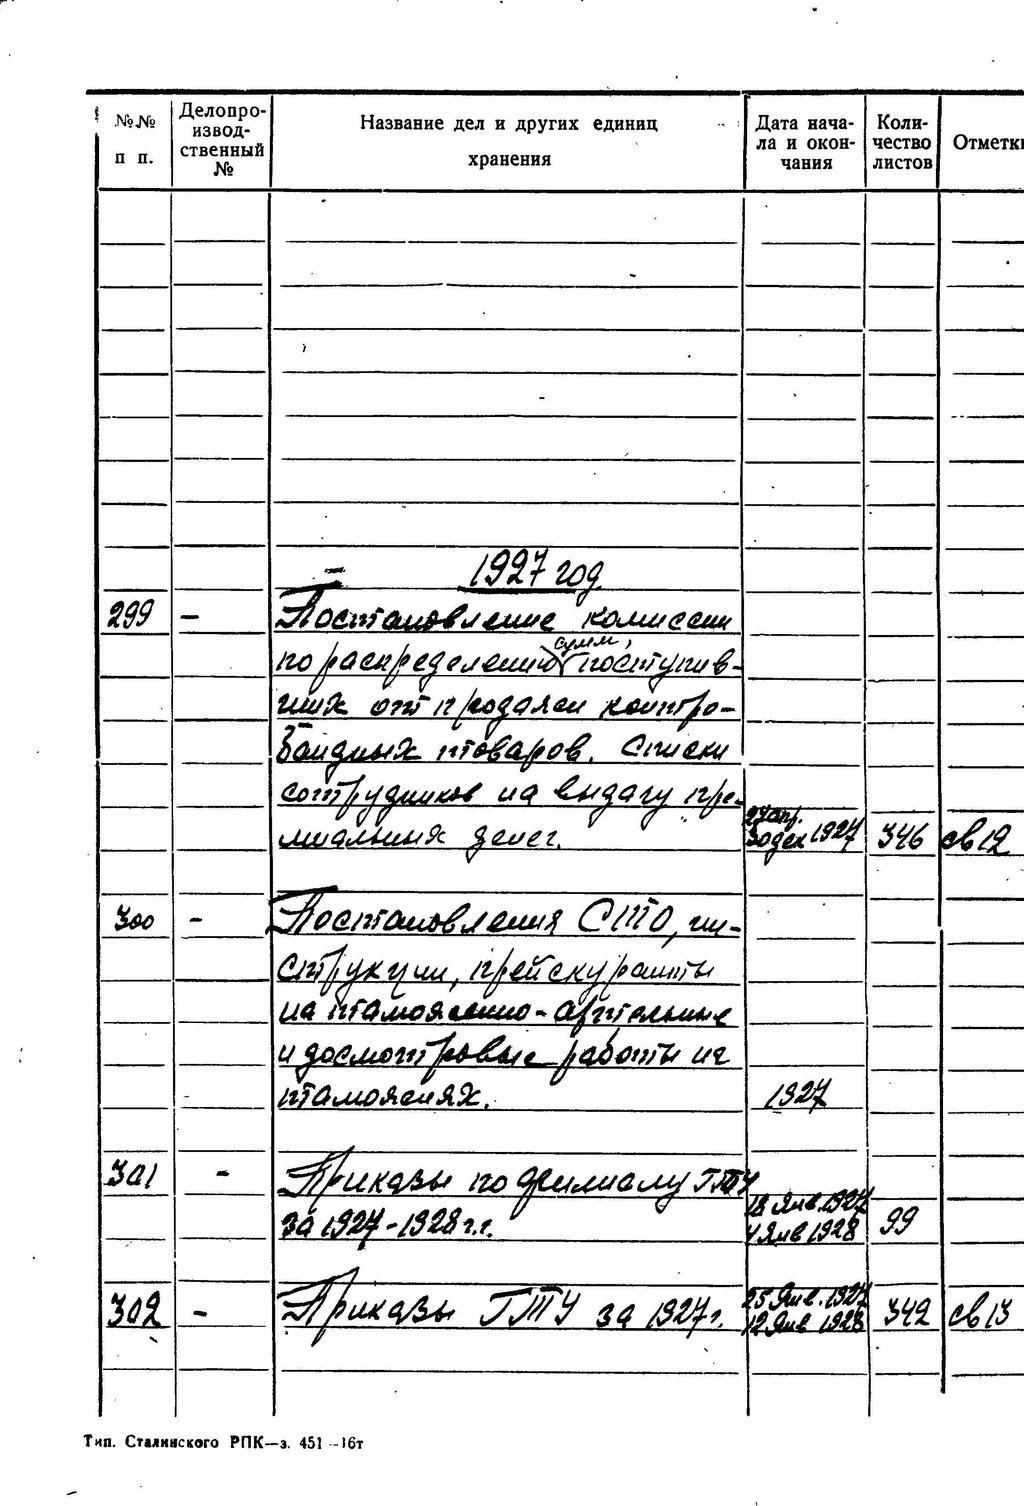 №№ п п. Делопроизводственный № Название дел и других единиц хранения Дата начала и окончания Количество листов Отметки
1927 год
299 – Постановление комиссии
по распределению сумм, поступив-
ших от продажи контра-
бандных товаров. Списки
сотрудников на выдачу пре-
миальных денег. 27 апр. 30 дек 1927 346 св 12
300 – Постановления СТО, ин-
струкции, прейскуранты
на таможенно-артельные
и досмотровые работы на
таможнях. 1927
301 – Приказы по филиалу ГТУ
за 1927-1928 г.г. 18 Янв. 1927 4 Янв 1928 99
302 – Приказы ГТУ за 1927 г. 25 Янв. 1927 12 Янв 1928 342 св 13
Тип. Сталинского РПК—з. 451—16т